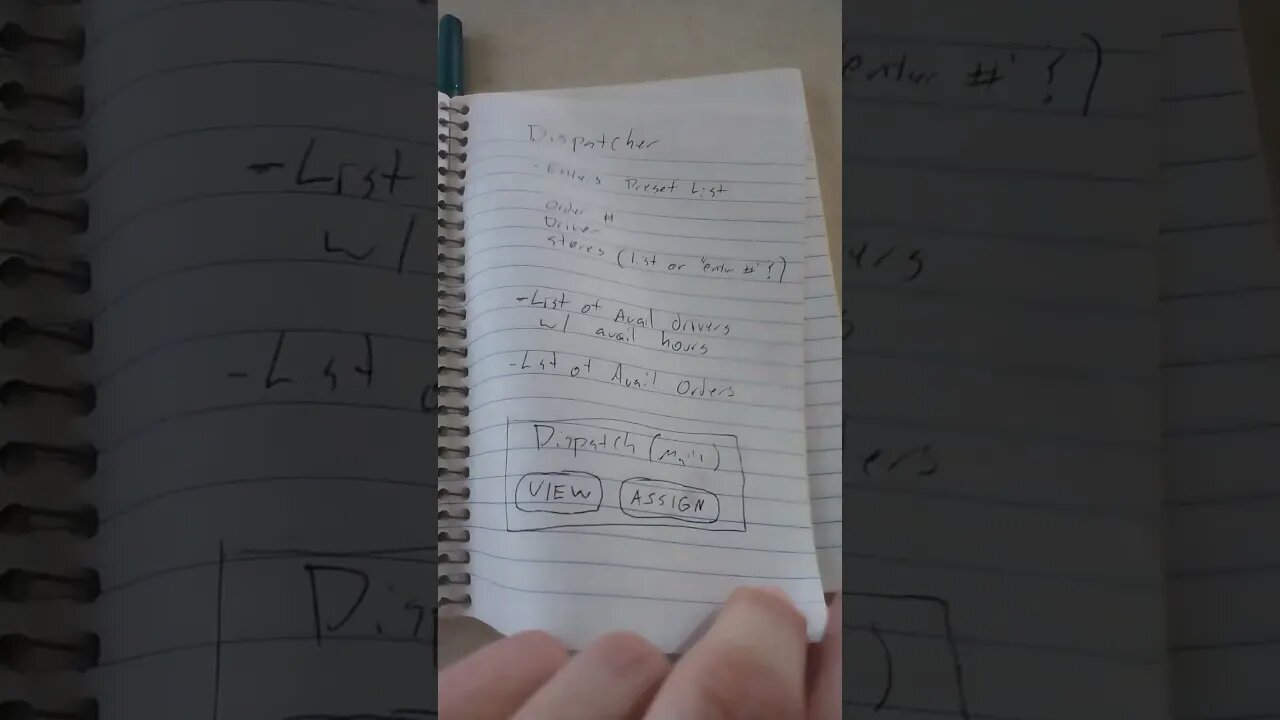 Dispatcher
- Enters Preset List
Order #
Driver
Stores (List or "enter #"?)
- List of Avail drivers
w/ avail hours
- List of Avail Orders
Dispatch (Main)
VIEW ASSIGN